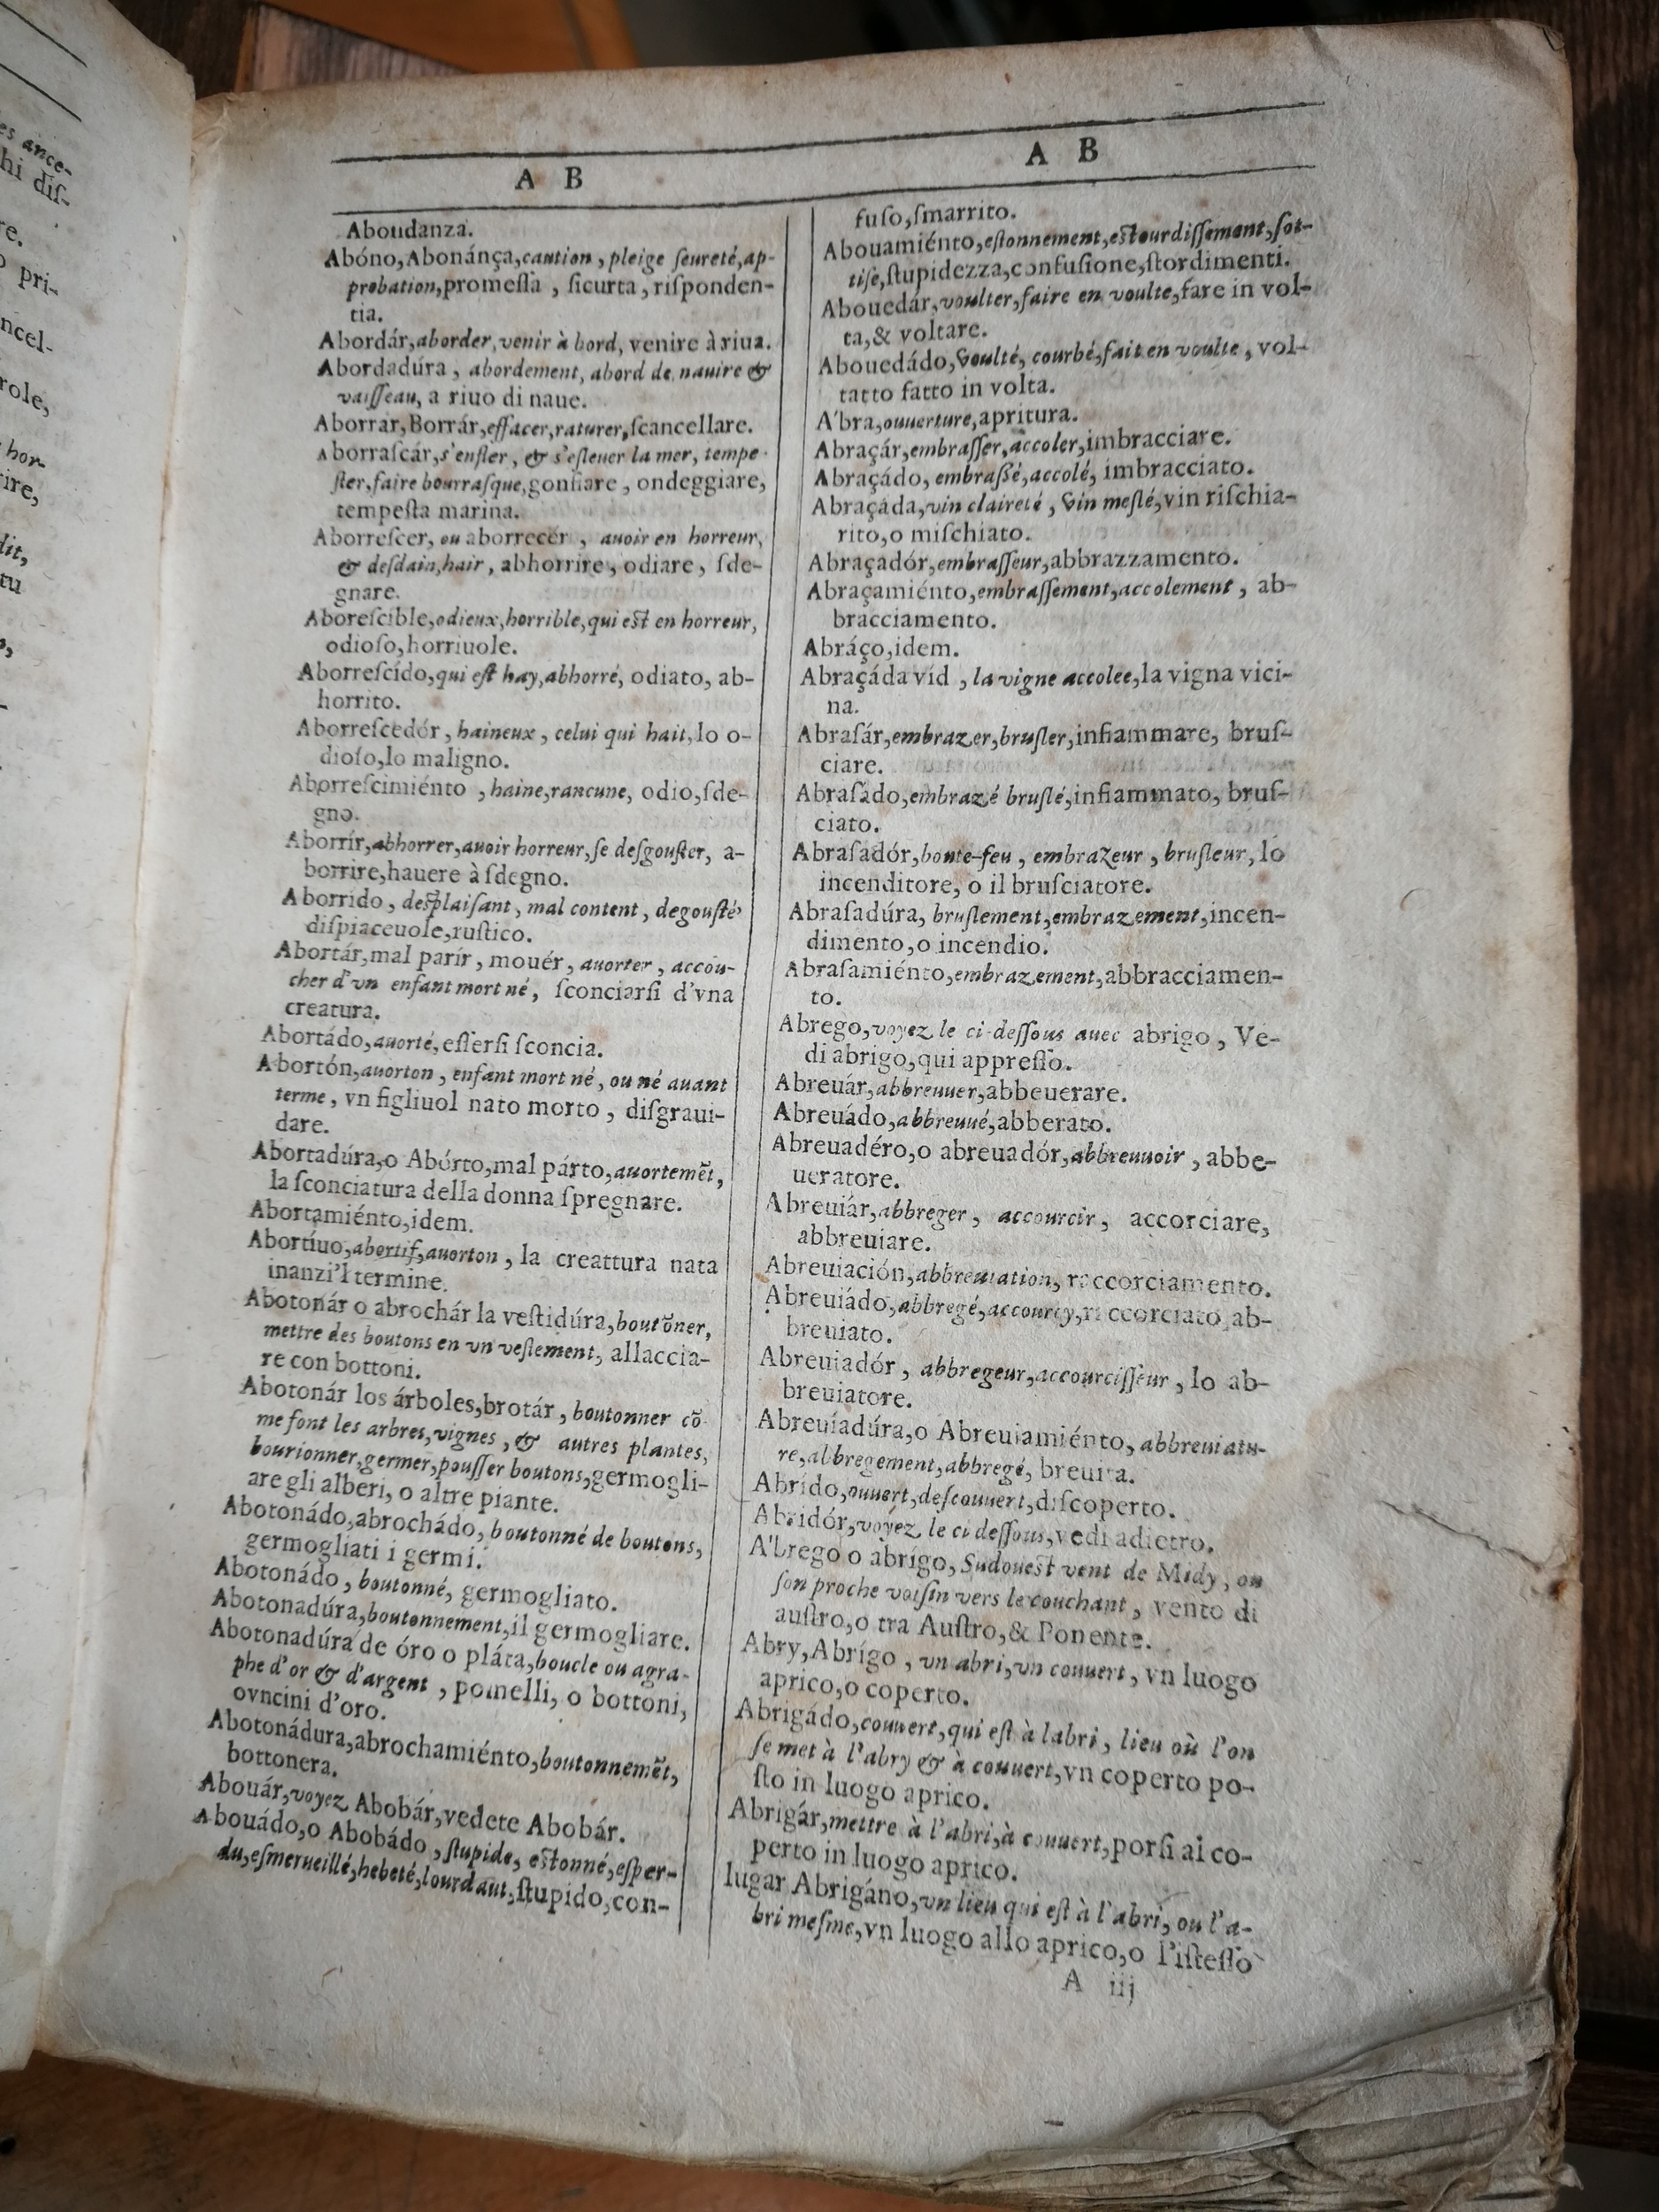 es ance-
hi diſ-
re.
pri-
ncel-
role,
hor-
ire,
dit,
tu
A B
Aboudanza.
Abóno,Abonánça,caution, pleige ſeureté,ap-
probation,promeſſa, ſicurta, riſponden-
tia.
Abordár,aborder,venir à bord, venire à riua.
Abordadúra, abordement, abord de nauire &
vaiſſeau, a riuo di naue.
Aborrar,Borrár,effacer,raturer,ſcancellare.
Aborraſcár,s'enfler, & s'eſleuer la mer, tempe-
ſter,faire bourraſque,gonfiare, ondeggiare,
tempeſta marina.
Aborreſcer, ou aborrecér, auoir en horreur,
& deſdain,hair, abhorrire, odiare, ſde-
gnare.
Aboreſcible,odieux,horrible,qui eſt en horreur,
odioſo,horriuole.
Aborreſcído,qui eſt hay,abhorré, odiato, ab-
horrito.
Aborreſcedór, haineux, celui qui hait,lo o-
dioſo,lo maligno.
Aborreſcimiénto, haine,rancune, odio,ſde-
gno.
Aborrír,abhorrer,auoir horreur,ſe deſgouſter, a-
borrire,hauere à ſdegno.
Aborrido, deſplaiſant, mal content, degouſté,
diſpiaceuole,ruſtico.
Abortár,mal parír, mouér, auorter, accou-
cher d'vn enfant mort né, ſconciarſi d'vna
creatura.
Abortádo,auorté,eſſerſi ſconcia.
Abortón,auorton, enfant mort né, ou né auant
terme, vn figliuol nato morto, diſgraui-
dare.
Abortadúra,o Abórto,mal párto,auortemēt,
la ſconciatura della donna ſpregnare.
Abortamiénto,idem.
Abortíuo,abortif,auorton, la creattura nata
inanzi'l termine.
Abotonár o abrochár la veſtidúra,boutōner,
mettre des boutons en vn veſtement, allaccia-
re con bottoni.
Abotonár los árboles,brotár, boutonner cō
me font les arbres,vignes, & autres plantes,
bourionner,germer,pouſſer boutons,germogli-
are gli alberi, o altre piante.
Abotonádo,abrochádo, boutonné de boutons,
germogliati i germi.
Abotonádo, boutonné, germogliato.
Abotonadúra,boutonnement,il germogliare.
Abotonadúra de óro o pláta,boucle ou agra-
phe d'or & d'argent, pomelli, o bottoni,
ovncini d'oro.
Abotonádura,abrochamiénto,boutonnemēt,
bottonera.
Abouár,voyez Abobár,vedete Abobár.
Abouádo,o Abobádo, ſtupide, eſtonné,eſper-
du,eſmerueillé,hebeté,lourdaut,ſtupido,con-
A B
fuſo,ſmarrito.
Abouamiénto,eſtonnement,eſtourdiſſement,ſot-
tiſe,ſtupidezza,confuſione,ſtordimenti.
Abouedár,voulter,faire en voulte,fare in vol-
ta,& voltare.
Abouedádo,voulté, courbé,fait en voulte, vol-
tatto fatto in volta.
A'bra,ouuerture,apritura.
Abraçár,embraſſer,accoler,imbracciare.
Abraçádo, embraſſé,accolé, imbracciato.
Abraçáda,vin claireté, vin meſlé,vin riſchia-
rito,o miſchiato.
Abraçadór,embraſſeur,abbrazzamento.
Abraçamiénto,embraſſement,accolement, ab-
bracciamento.
Abráço,idem.
Abraçáda víd, la vigne accolee,la vigna vici-
na.
Abraſár,embrazer,bruſler,infiammare, bruſ-
ciare.
Abraſádo,embrazé bruſlé,infiammato, bruſ-
ciato.
Abraſadór,boute-feu, embrazeur, bruſleur, lo
incenditore, o il bruſciatore.
Abraſadúra, bruſlement,embrazement,incen-
dimento,o incendio.
Abraſamiénto,embrazement,abbracciamen-
to.
Abrego,voyez le ci-deſſous auec abrigo, Ve-
di abrigo,qui appreſſo.
Abreuár,abbreuuer,abbeuerare.
Abreuádo,abbreuué,abberato.
Abreuadéro,o abreuadór,abbreuuoir, abbe-
ueratore.
Abreuiár,abbreger, accourcir, accorciare,
abbreuiare.
Abreuiación,abbreuiation, raccorciamento.
Abreuiádo,abbregé,accourcy,raccorciato,ab-
breuiato.
Abreuiadór, abbregeur,accourciſſeur, lo ab-
breuiatore.
Abreuíadúra,o Abreuiamiénto, abbreuiatu-
re,abbregement,abbregé, breuita.
Abrído,ouuert,deſcouuert,diſcoperto.
Abridór,voyez le ci deſſous,vedi adietro.
A'brego o abrígo, Sudoueſt vent de Midy, ou
ſon proche voiſin vers le couchant, vento di
auſtro,o tra Auſtro,& Ponente.
Abry,Abrígo, vn abri,vn couuert, vn luogo
aprico,o coperto.
Abrigádo,couuert,qui eſt à labri, lieu où l'on
ſe met à l'abry & à couuert,vn coperto po-
ſto in luogo aprico.
Abrigár,mettre à l'abri,à couuert,porſi ai co-
perto in luogo aprico.
lugar Abrigáno,vn lieu qui eſt à l'abri, ou l'a-
bri meſme,vn luogo allo aprico,o l'iſteſſo
A iij